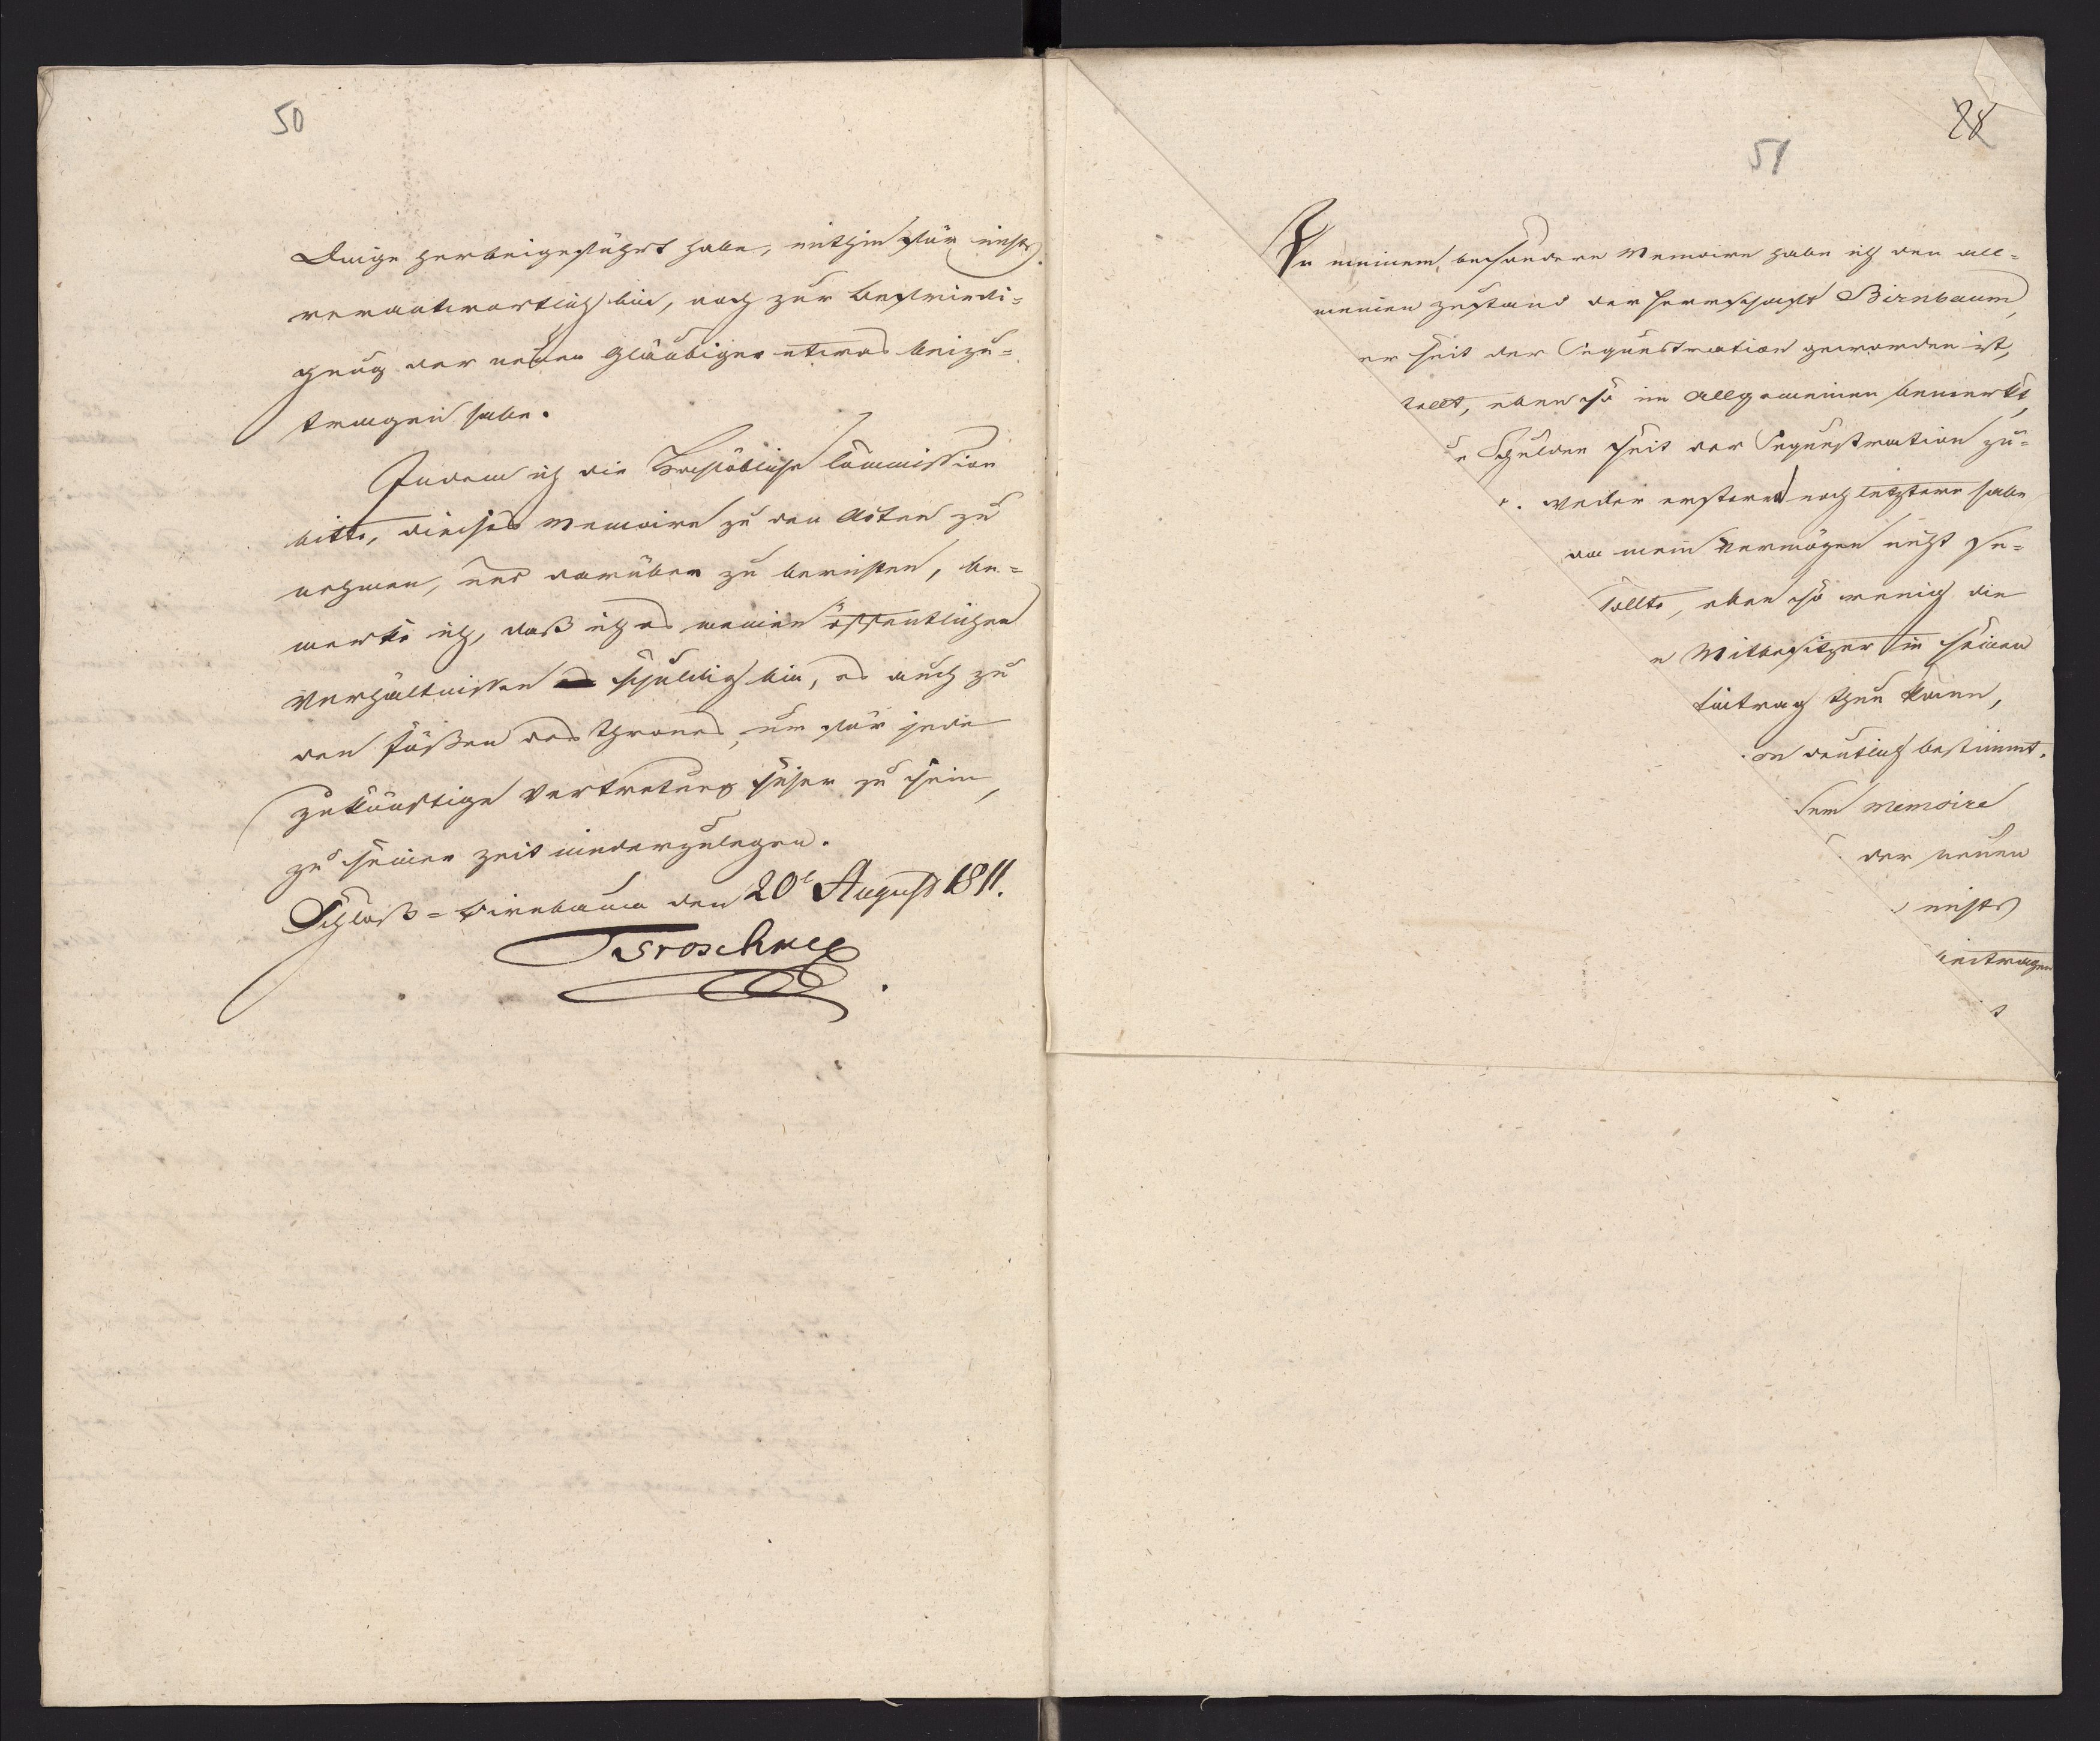 50
Dinge herbeigeführt habe, mithin für nichts
verantwortlich bin, noch zur Befriedi=
gung der neuen Gläubiger etwas beizu=
tragen habe.
Indem ich die Hochlöbliche Commission
bitte, dieses Memoire zu den Acten zu
nehmen, und darüber zu berichten, be=
merke ich, daß ich es meinen öffentlichen
Verhältnissen schuldig bin, es auch zu
den Füßen des Thrones, um für jede
zukünftige Vertretung sicher zu sein,
zu seiner Zeit niederzulegen.
Schloß=Birnbaum den 20t August 1811.
28
51
In meinem besondern Memoire habe ich den all=
meinen Zustand der Herrschaft Birnbaum,
er seit der Sequestration geworden ist,
tellt, eben so im Allgemeinen bemerkt,
e Schulden seit der Sequestration zu=
. weder erstere noch letztere habe
da mein Vermögen nicht
sollte, eben so wenig die
n Mitbesitzer in seinen
Eintrag thun kann,
on deutlich bestimmt.
sem Memoire
der neuen
nichts
beitragen